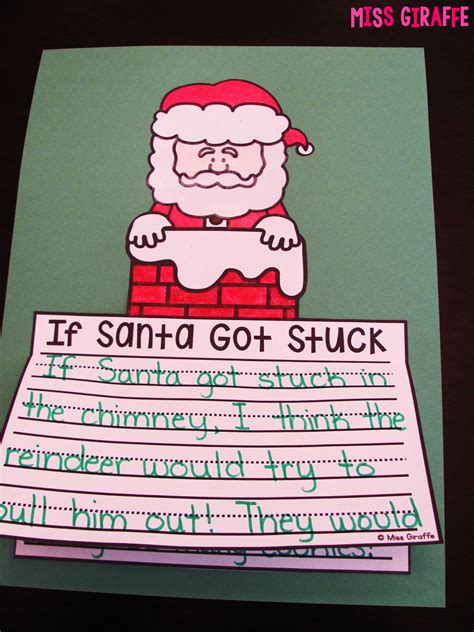 MISS GIRAFFE
If Santa Got Stuck
If Santa got stuck in
the chimney, I think the
reindeer would try to
pull him out! They would
© Miss Giraffe